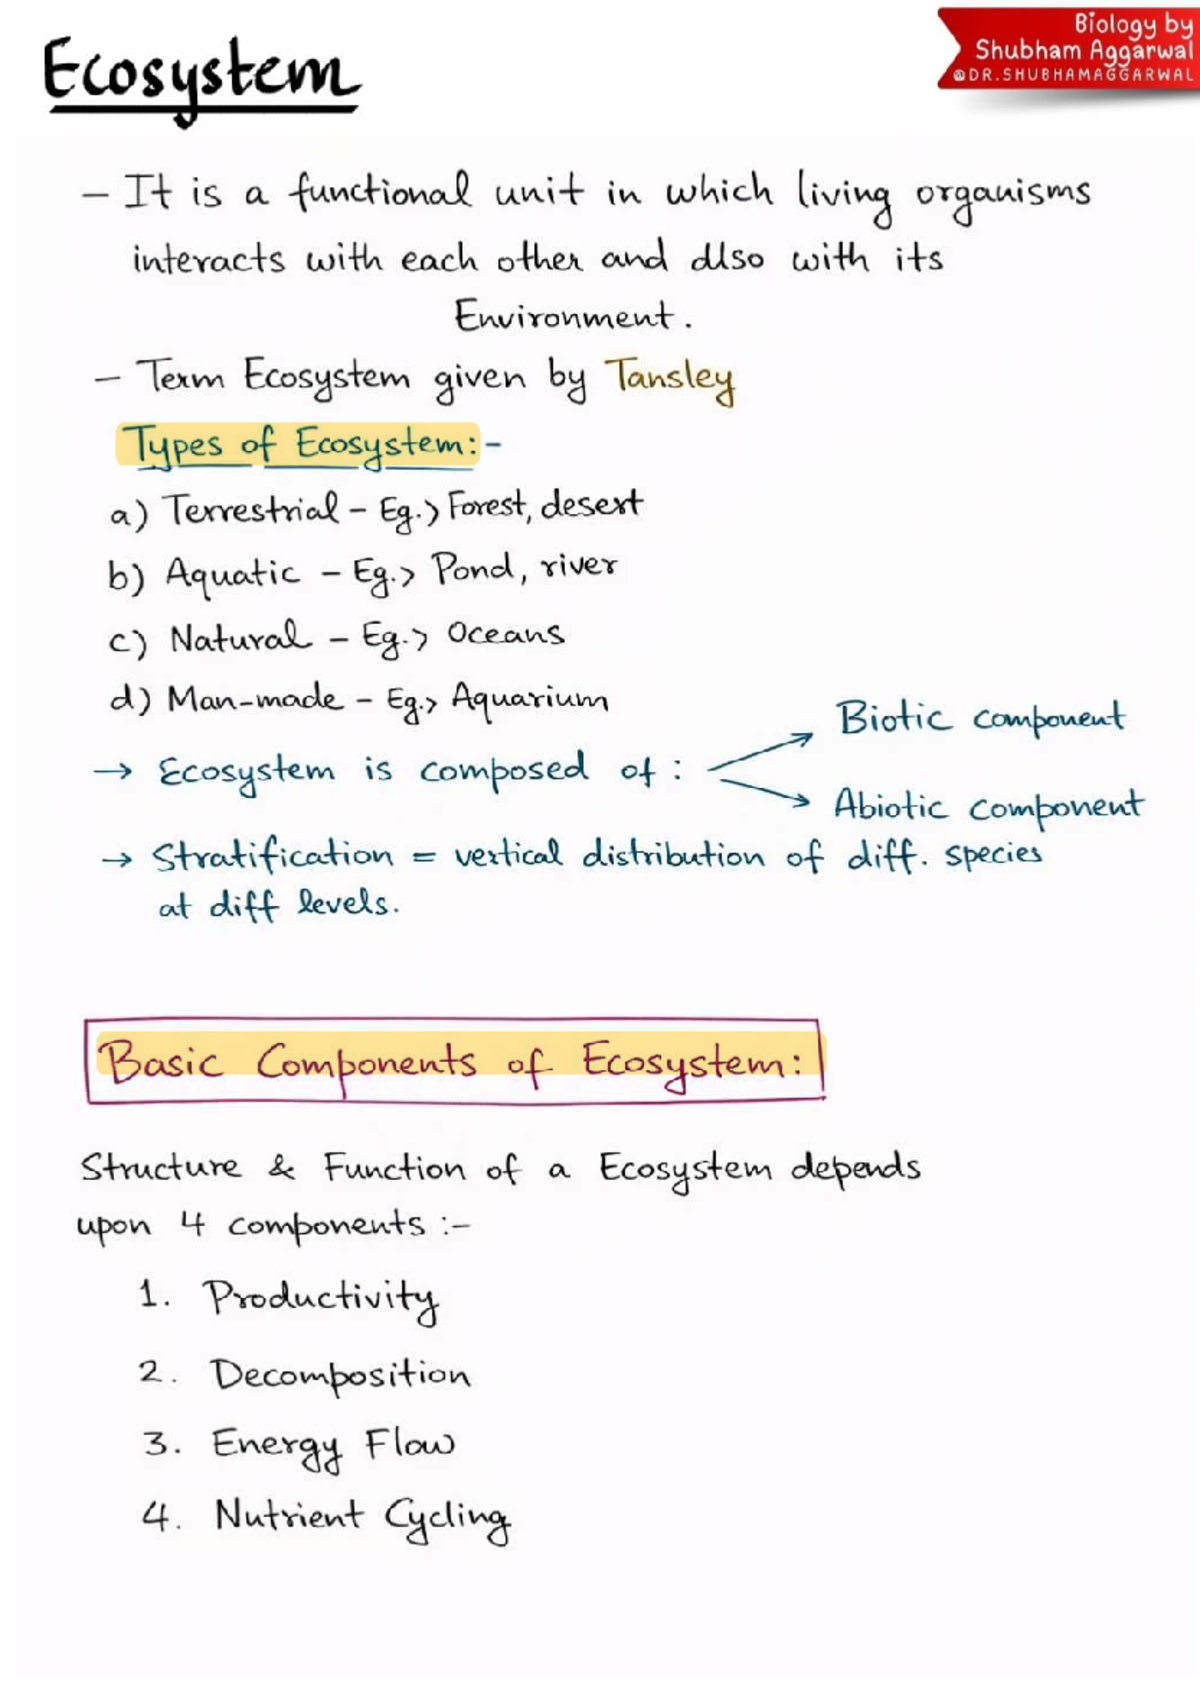 Ecosystem
Biology by
Shubham Aggarwal
@DR.SHUBHAMAGGARWAL
- It is a functional unit in which living organisms
interacts with each other and also with its
Environment.
- Term Ecosystem given by Tansley
Types of Ecosystem:-
a) Terrestrial - Eg.> Forest, desert
b) Aquatic - Eg.> Pond, river
c) Natural - Eg.> Oceans
d) Man-made - Eg.> Aquarium
→ Ecosystem is composed of :
Biotic component
Abiotic component
→ Stratification = vertical distribution of diff. species
at diff levels.
Basic Components of Ecosystem:
Structure & Function of a Ecosystem depends
upon 4 components :-
1. Productivity
2. Decomposition
3. Energy Flow
4. Nutrient Cycling